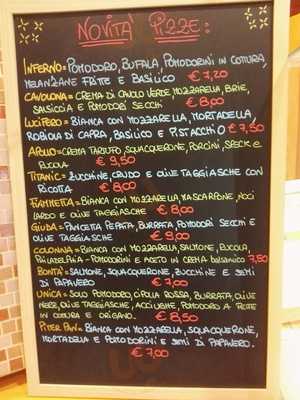 NOVITÀ PIZZE:
INFERNO= POMODORO, BUFALA, POMODORINI IN COTTURA,
MELANZANE FRITTE E BASILICO € 7,20
CAVOLONA= CREMA DI CAVOLO VERDE, MOZZARELLA, BRIE,
SALSICCIA E POMODORI SECCHI € 8,00
LUCIFERO= BIANCA CON MOZZARELLA, MORTADELLA,
ROBIOLA DI CAPRA, BASILICO E PISTACCHIO € 7,50
CREMA TARTUFO, SQUACQUERONE, PORCINI, SPECK E
RUCOLA € 9,50
TITANIC= ZUCCHINE, CRUDO E OLIVE TAGGIASCHE CON
RICOTTA € 8,00
FIAMMETTA= BIANCA CON MOZZARELLA, MASCARPONE, NOCI
LARDO E OLIVE TAGGIASCHE € 8,00
GIUDA= PANCETTA, PEPATA, BURRATA, POMODORI SECCHI E
OLIVE TAGGIASCHE € 9,00
COLONIALE= BIANCA CON MOZZARELLA, SALMONE, RUCOLA,
PHILADELPHIA - POMODORINI E ACETO IN CREMA BALSAMICO 7,50
BONTÀ= SALMONE, SQUACQUERONE, ZUCCHINE E SEMI
DI PAPAVERO € 7,00
UNICA= SOLO POMODORO, CIPOLLA ROSSA, BURRATA, OLIVE
NERE, OLIVE TAGGIASCHE, ACCIUGHE, POMODORO A FETTE
IN COTTURA E ORIGANO. € 8,50
PITER PAN= BIANCA CON MOZZARELLA, SQUACQUERONE,
MORTADELLA E POMODORINI E SEMI DI PAPAVERO.
€ 7,00